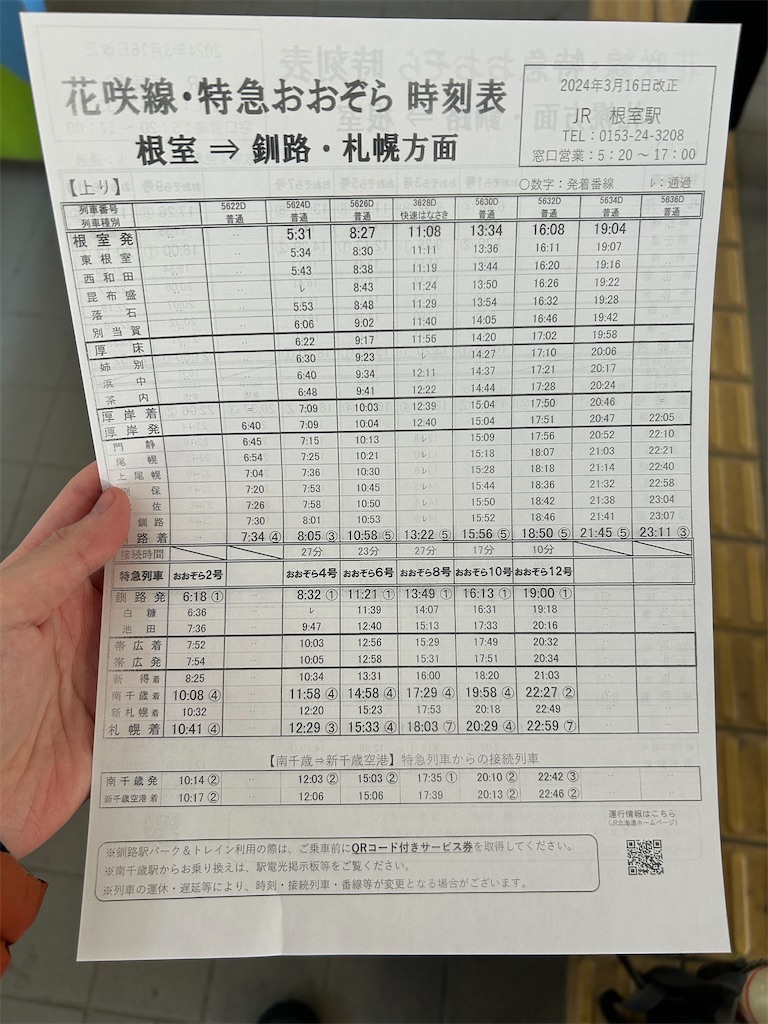 花咲線・特急おおぞら 時刻表
根室 ⇒ 釧路・札幌方面
2024年3月16日改正
JR 根室駅
TEL：0153-24-3208
窓口営業：5：20～17：00
【上り】 ○数字：発着番線 ﾚ：通過
列車番号 5622D 5624D 5626D 3628D 5630D 5632D 5634D 5636D
列車種別 普通 普通 普通 快速はなさき 普通 普通 普通 普通
根室発 ‥ ‥ 5:31 8:27 11:08 13:34 16:08 19:04 ‥
東根室 ‥ ‥ 5:34 8:30 11:11 13:36 16:11 19:07 ‥
西和田 ‥ ‥ 5:43 8:38 11:19 13:44 16:20 19:16 ‥
昆布盛 ‥ ‥ ﾚ 8:43 11:24 13:50 16:26 19:22 ‥
落石 ‥ ‥ 5:53 8:48 11:29 13:54 16:32 19:28 ‥
別当賀 ‥ ‥ 6:06 9:02 11:40 14:05 16:46 19:42 ‥
厚床 ‥ ‥ 6:22 9:17 11:56 14:20 17:02 19:58 ‥
姉別 ‥ ‥ 6:30 9:23 ﾚ 14:27 17:10 20:06 ‥
浜中 ‥ ‥ 6:40 9:34 12:11 14:37 17:21 20:17 ‥
茶内 ‥ ‥ 6:48 9:41 12:22 14:44 17:28 20:24 ‥
厚岸着 ‥ = 7:09 10:03 12:39 15:04 17:50 20:46 =
厚岸発 ‥ 6:40 7:09 10:04 12:40 15:04 17:51 20:47 22:05
門静 ‥ 6:45 7:15 10:13 ﾚ 15:09 17:56 20:52 22:10
尾幌 ‥ 6:54 7:25 10:21 ﾚ 15:18 18:07 21:03 22:21
上尾幌 ‥ 7:04 7:36 10:30 ﾚ 15:28 18:18 21:14 22:40
保 ‥ 7:20 7:53 10:45 ﾚ 15:44 18:36 21:32 22:58
佐 ‥ 7:26 7:58 10:50 ﾚ 15:50 18:42 21:38 23:04
釧路 ‥ 7:30 8:01 10:53 ﾚ 15:52 18:46 21:41 23:07
路着 ‥ 7:34④ 8:05③ 10:58⑤ 13:22⑤ 15:56⑤ 18:50⑤ 21:45⑤ 23:11③
接続時間 27分 23分 27分 17分 10分
特急列車 おおぞら2号 おおぞら4号 おおぞら6号 おおぞら8号 おおぞら10号 おおぞら12号
釧路発 6:18① ‥ 8:32① 11:21① 13:49① 16:13① 19:00① ‥ ‥
白糠 6:36 ‥ ﾚ 11:39 14:07 16:31 19:18 ‥ ‥
池田 7:36 ‥ 9:47 12:40 15:13 17:33 20:16 ‥ ‥
帯広着 7:52 ‥ 10:03 12:56 15:29 17:49 20:32 ‥ ‥
帯広発 7:54 ‥ 10:05 12:58 15:31 17:51 20:34 ‥ ‥
新得着 8:25 ‥ 10:34 13:31 16:00 18:20 21:03 ‥ ‥
南千歳着 10:08④ ‥ 11:58④ 14:58④ 17:29④ 19:58④ 22:27② ‥ ‥
新札幌着 10:32 ‥ 12:20 15:23 17:53 20:18 22:49 ‥ ‥
札幌着 10:41④ ‥ 12:29③ 15:33④ 18:03⑦ 20:29④ 22:59⑦ ‥ ‥
【南千歳⇒新千歳空港】特急列車からの接続列車
南千歳発 10:14② ‥ 12:03② 15:03② 17:35① 20:10② 22:42③ ‥ ‥
新千歳空港着 10:17② ‥ 12:06 15:06 17:39 20:13② 22:46② ‥ ‥
運行情報はこちら
(JR北海道ホームページ)
※釧路駅パーク＆トレイン利用の際は、ご乗車前にQRコード付きサービス券を取得してください。
※南千歳駅からお乗り換えは、駅電光掲示板等をご覧ください。
※列車の運休・遅延等により、時刻・接続列車・番線等が変更となる場合がございます。